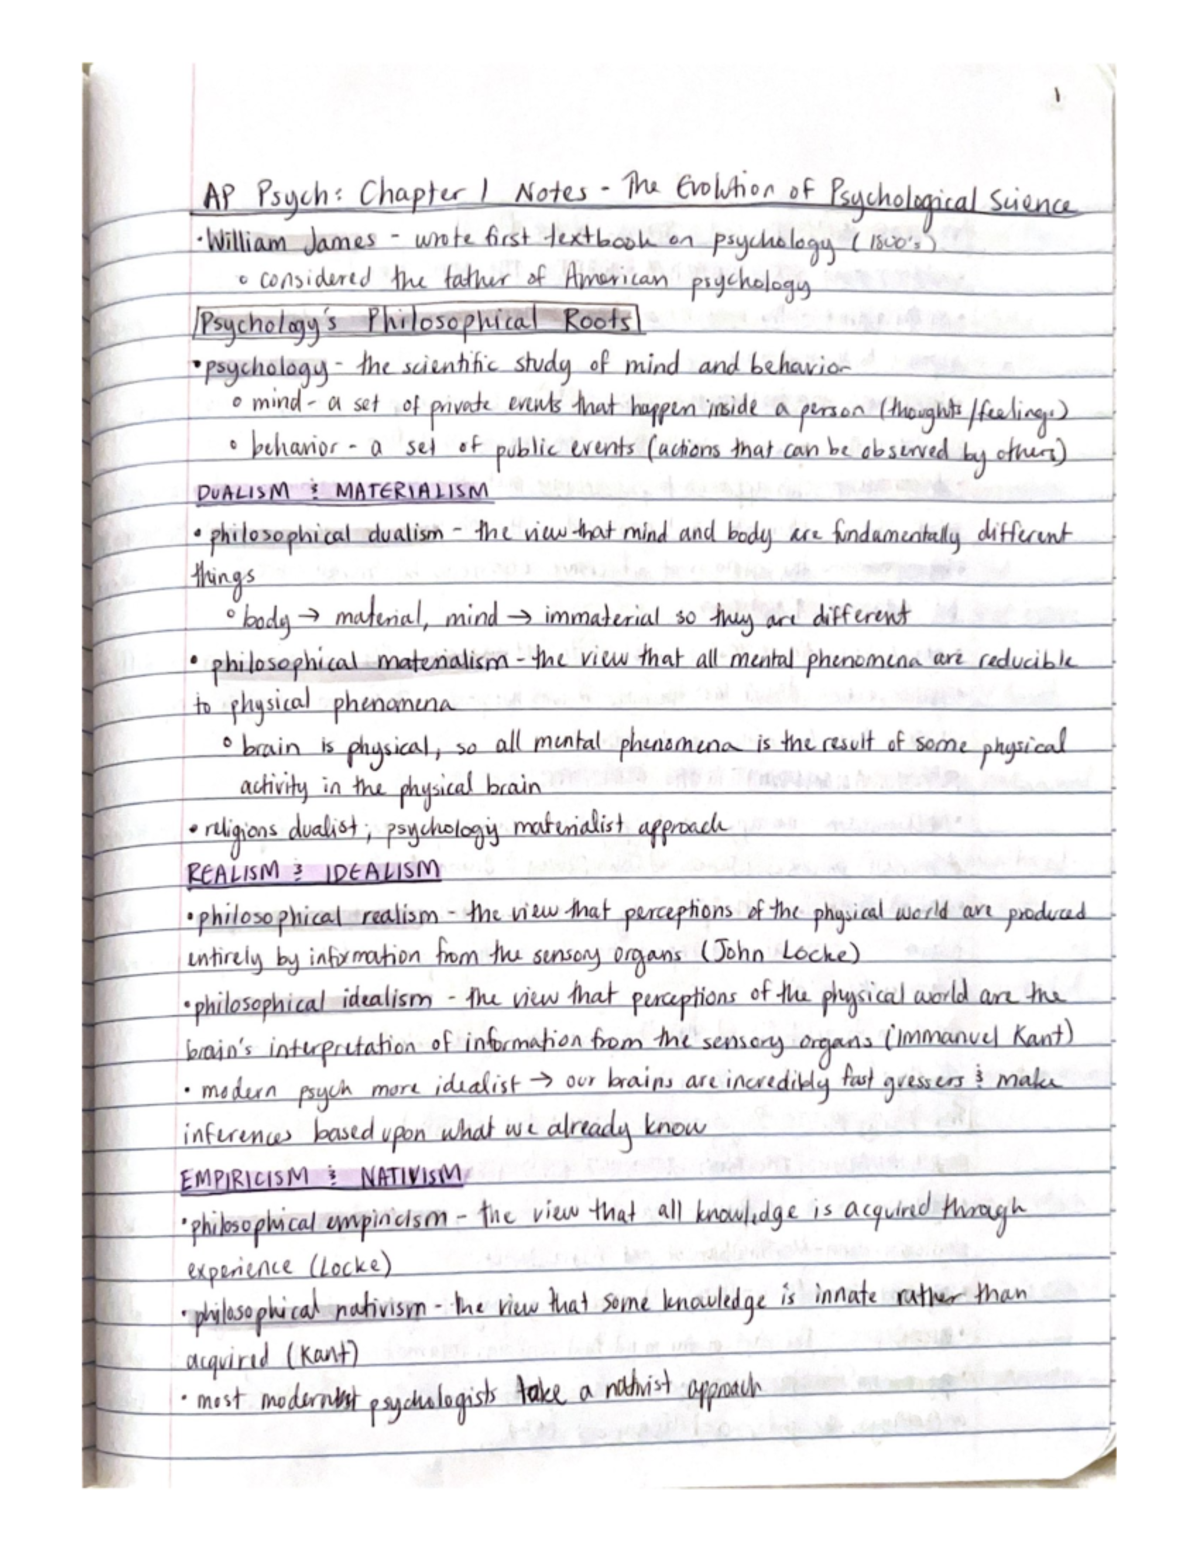 1
AP Psych: Chapter 1 Notes - The Evolution of Psychological Science
·William James - wrote first textbook on psychology (1800's)
◦ considered the father of American psychology
Psychology's Philosophical Roots
•psychology - the scientific study of mind and behavior
◦ mind - a set of private events that happen inside a person (thoughts/feelings)
◦ behavior - a set of public events (actions that can be observed by others)
DUALISM & MATERIALISM
• philosophical dualism - the view that mind and body are fundamentally different
things
◦ body → material, mind → immaterial so they are different
• philosophical materialism - the view that all mental phenomena are reducible
to physical phenomena
◦ brain is physical, so all mental phenomena is the result of some physical
activity in the physical brain
• religions dualist; psychology materialist approach
REALISM & IDEALISM
•philosophical realism - the view that perceptions of the physical world are produced
entirely by information from the sensory organs (John Locke)
•philosophical idealism - the view that perceptions of the physical world are the
brain's interpretation of information from the sensory organs (Immanuel Kant)
• modern psych more idealist → our brains are incredibly fast guessers & make
inferences based upon what we already know
EMPIRICISM & NATIVISM
•philosophical empiricism - the view that all knowledge is acquired through
experience (Locke)
• philosophical nativism - the view that some knowledge is innate rather than
acquired (Kant)
• most modern psychologists take a nativist approach